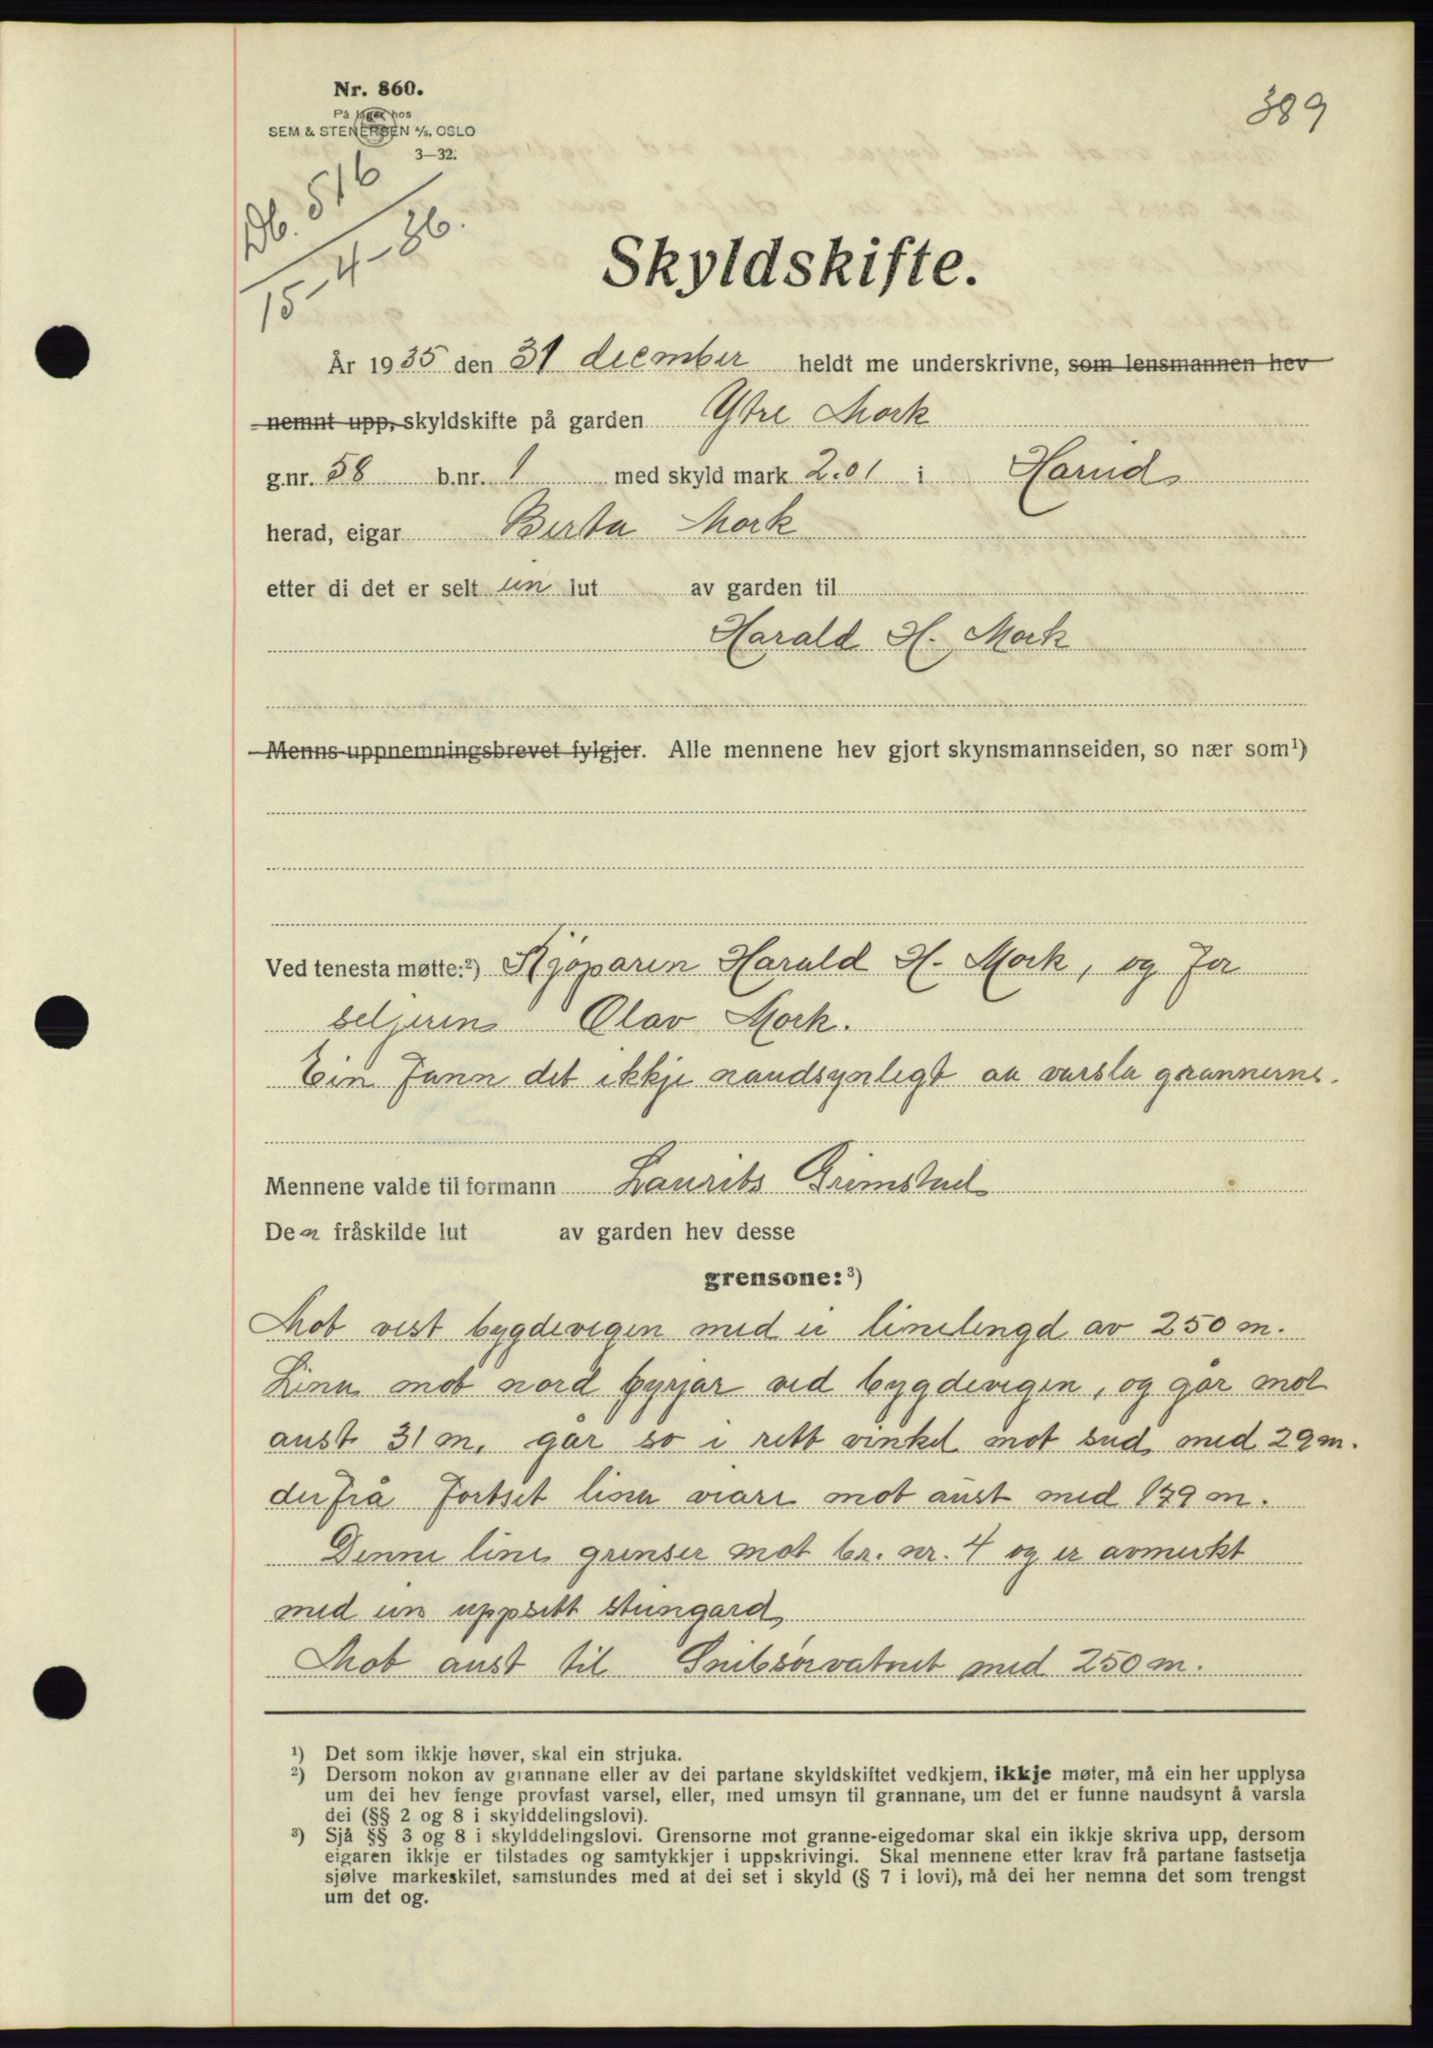 Nr. 860.
På lager hos
SEM & STENERSEN A/S, OSLO
3—32.
389
Db. 516
15-4-36.
Skyldskifte.
År 1935 den 31 december heldt me underskrivne, som lensmannen hev
nemnt upp, skyldskifte på garden Ytre Mork
g.nr. 58 b.nr. 1 med skyld mark 2.01 i Hareid
herad, eigar Berta Mork
etter di det er selt ein lut av garden til
Harald H. Mork
Menns-uppnemningsbrevet fylgjer. Alle mennene hev gjort skynsmannseiden, so nær som¹)
Ved tenesta møtte:²) Kjøparen Harald H. Mork, og for
seljeren Olav Mork.
Ein fann det ikkje naudsynlegt aa varsla grannerne.
Mennene valde til formann Laurits Grimstad
Den fråskilde lut av garden hev desse
grensone:³)
Mot vest bygdevegen med ei linelengd av 250 m.
Lina mot nord byrjar ved bygdevegen, og går mot
aust 31 m, går so i rett vinkel mot sud med 29 m.
derfrå fortset lina viare mot aust med 179 m.
Denne line grenser mot br. nr. 4 og er avmerkt
med ein uppsett steingard
Mot aust til Snipsørvatnet med 250 m.
¹) Det som ikkje høver, skal ein strjuka.
²) Dersom nokon av grannane eller av dei partane skyldskiftet vedkjem, ikkje møter, må ein her upplysa
um dei hev fenge provfast varsel, eller, med umsyn til grannane, um det er funne naudsynt å varsla
dei (§§ 2 og 8 i skylddelingslovi).
³) Sjå §§ 3 og 8 i skylddelingslovi. Grensorne mot granne-eigedomar skal ein ikkje skriva upp, dersom
eigaren ikkje er tilstades og samtykkjer i uppskrivingi. Skal mennene etter krav frå partane fastsetja
sjølve markeskilet, samstundes med at dei set i skyld (§ 7 i lovi), må dei her nemna det som trengst
um det og.